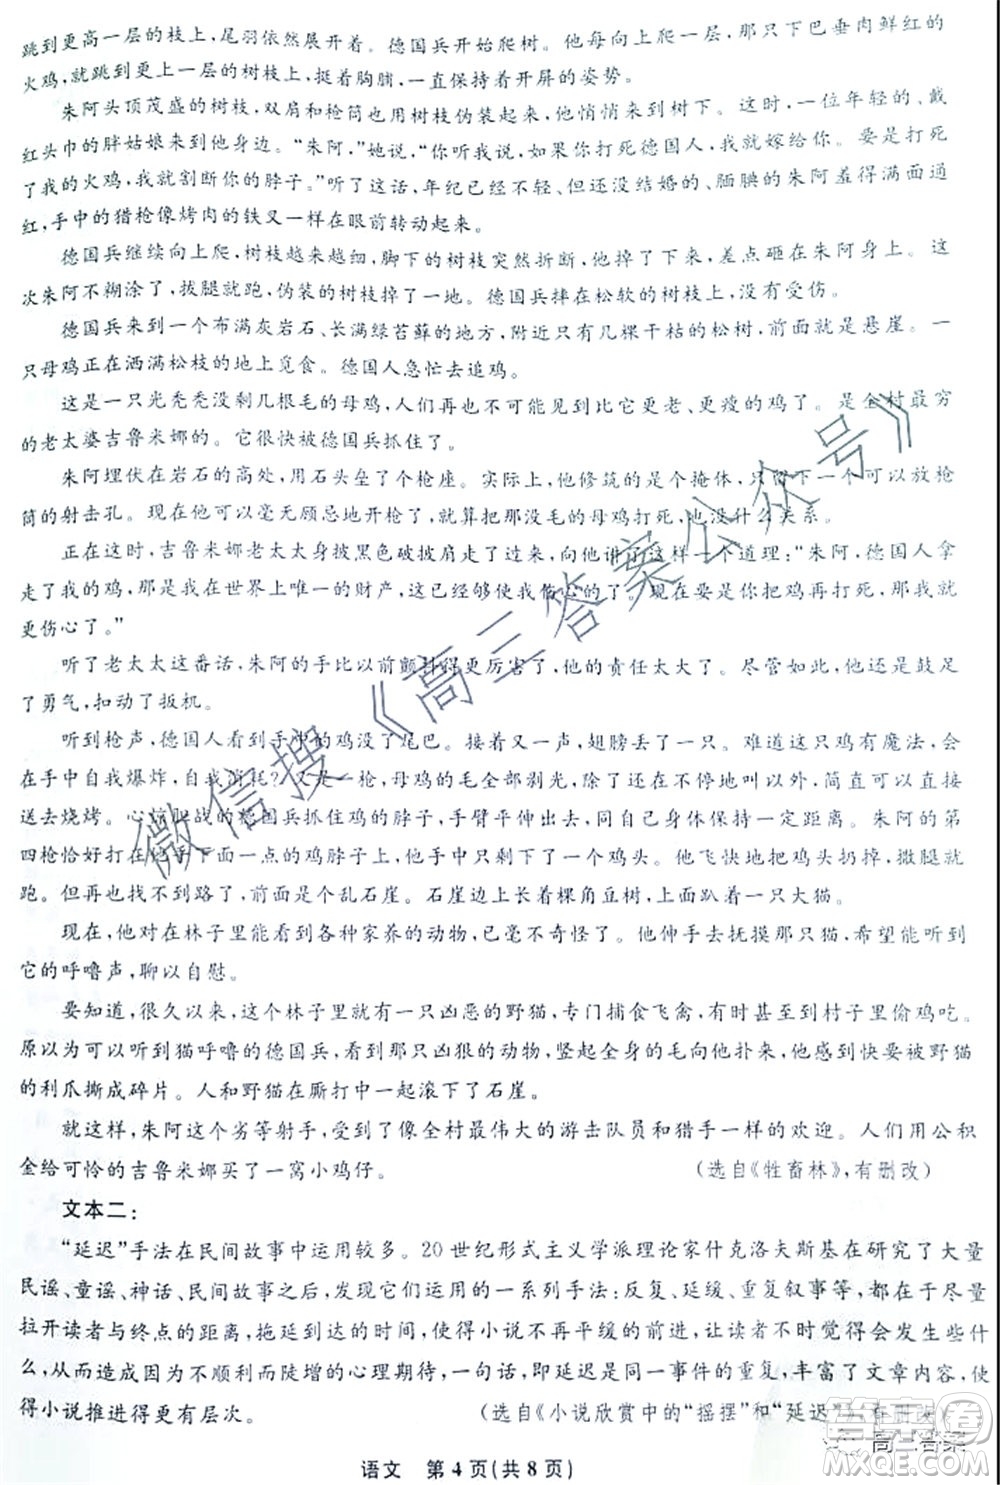 跳到更高一层的枝上，尾羽依然展开着。德国兵开始爬树。他每向上爬一层，那只下巴垂肉鲜红的
火鸡，就跳到更上一层的树枝上，挺着胸脯，一直保持着开屏的姿势。
朱阿头顶茂盛的树枝，双肩和枪筒也用树枝伪装起来，他悄悄来到树下。这时，一位年轻的、戴
红头巾的胖姑娘来到他身边。“朱阿，”她说，“你听我说，如果你打死德国人，我就嫁给你。要是打死
了我的火鸡，我就割断你的脖子。”听了这话，年纪已经不轻、但还没结婚的、腼腆的朱阿羞得满面通
红，手中的猎枪像烤肉的铁叉一样在眼前转动起来。
德国兵继续向上爬，树枝越来越细，脚下的树枝突然折断，他掉了下来，差点砸在朱阿身上。这
次朱阿不糊涂了，拔腿就跑，伪装的树枝掉了一地。德国兵摔在松软的树枝上，没有受伤。
德国兵来到一个布满灰岩石、长满绿苔藓的地方，附近只有几棵干枯的松树，前面就是悬崖。一
只母鸡正在洒满松枝的地上觅食。德国人急忙去追鸡。
这是一只光秃秃没剩几根毛的母鸡，人们再也不可能见到比它更老、更瘦的鸡了。是全村最穷
的老太婆吉鲁米娜的。它很快被德国兵抓住了。
朱阿埋伏在岩石的高处，用石头垒了个枪座。实际上，他修筑的是个掩体，只留下一个可以放枪
筒的射击孔。现在他可以毫无顾忌地开枪了，就算把那没毛的母鸡打死，也没什么关系。
正在这时，吉鲁米娜老太太身披黑色破披肩走了过来，向他讲了这样一个道理：“朱阿，德国人拿
走了我的鸡，那是我在世界上唯一的财产，这已经够使我伤心的了。现在要是你把鸡再打死，那我就
更伤心了。”
听了老太太这番话，朱阿的手比以前颤抖得更厉害了，他的责任太大了。尽管如此，他还是鼓足
了勇气，扣动了扳机。
听到枪声，德国人看到手中的鸡没了尾巴。接着又一声，翅膀丢了一只。难道这只鸡有魔法，会
在手中自我爆炸，自我消耗？又是一枪，母鸡的毛全部剥光，除了还在不停地叫以外，简直可以直接
送去烧烤。心惊胆战的德国兵抓住鸡的脖子，手臂平伸出去，同自己身体保持一定距离。朱阿的第
四枪恰好打在他手下面一点的鸡脖子上，他手中只剩下了一个鸡头。他飞快地把鸡头扔掉，撒腿就
跑。但再也找不到路了，前面是个乱石崖。石崖边上长着棵角豆树，上面趴着一只大猫。
现在，他对在林子里能看到各种家养的动物，已毫不奇怪了。他伸手去抚摸那只猫，希望能听到
它的呼噜声，聊以自慰。
要知道，很久以来，这个林子里就有一只凶恶的野猫，专门捕食飞禽，有时甚至到村子里偷鸡吃。
原以为可以听到猫呼噜的德国兵，看到那只凶狠的动物，竖起全身的毛向他扑来，他感到快要被野猫
的利爪撕成碎片。人和野猫在厮打中一起滚下了石崖。
就这样，朱阿这个劣等射手，受到了像全村最伟大的游击队员和猎手一样的欢迎。人们用公积
金给可怜的吉鲁米娜买了一窝小鸡仔。
（选自《牲畜林》，有删改）
文本二：
“延迟”手法在民间故事中运用较多。20世纪形式主义学派理论家什克洛夫斯基在研究了大量
民谣、童谣、神话、民间故事之后，发现了他们运用的一系列手法：反复、延缓、重复叙事等，都在于尽量
拉开读者与终点的距离，拖延到达的时间，使得小说不再平缓的前进，让读者不时觉得会发生些什
么，从而造成因为不顺利而陡增的心理期待，一句话，即延迟是同一事件的重复，丰富了文章内容，使
得小说推进得更有层次。
（选自《小说欣赏中的“摇摆”和“延迟”》，有删改）
语文　第4页（共8页）
微信搜《高三答案公众号》
高三答案